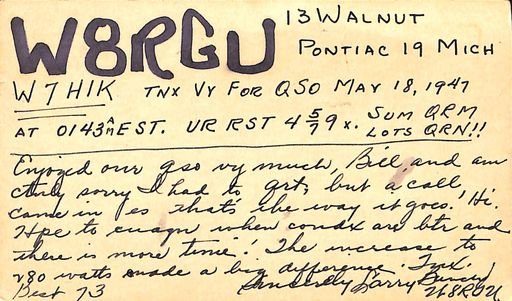 W8RGU
13 WALNUT
PONTIAC 19 MICH
W7HIK TNX VY FOR QSO MAY 18, 1947
AT 0143 AM EST. UR RST 4 5/7 9x. SUM QRM
LOTS QRN!!
Enjoyed our qso vy much, Bill and am
sorry I had to qrt, but a call
came in es that's the way it goes! Hi.
Hpe to cuagn when condx are btr and
there is more time! The increase to
280 watts made a big difference. Tnx.
Best 73 Sincerely Larry
W8RGU